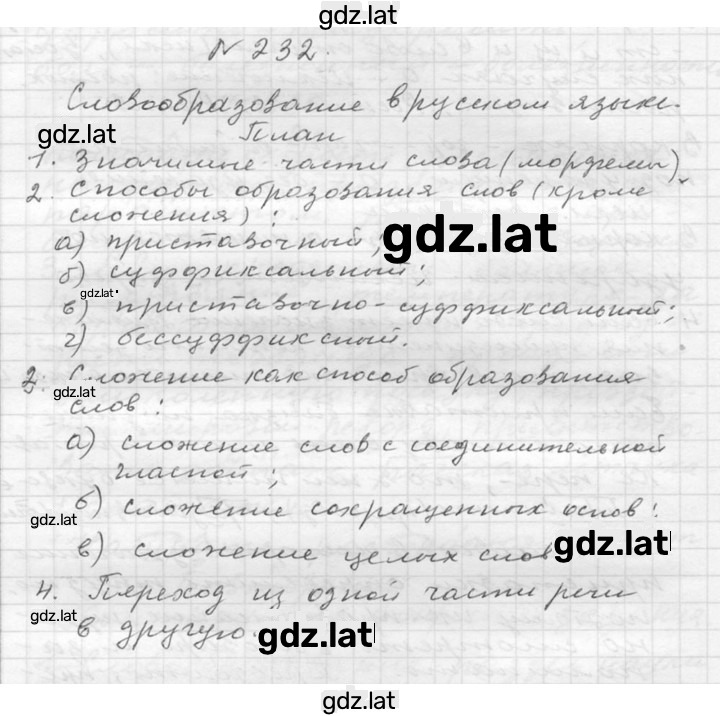 gdz.lat
№ 232.
Словообразование в русском языке.
gdz.lat
План
1. Значимые части слова (морфемы)
2. Способы образования слов (кроме
сложения):
gdz.lat
а) приставочный;
б) суффиксальный;
gdz.lat
в) приставочно-суффиксальный;
г) бессуффиксный.
3. Сложение как способ образования
gdz.lat
слов:
а) сложение слов с соединительной
гласной;
б) сложение сокращенных основ:
gdz.lat
в) сложение целых слов
gdz.lat
4. Переход из одной части речи
gdz.lat
в другую.
gdz.lat
gdz.lat